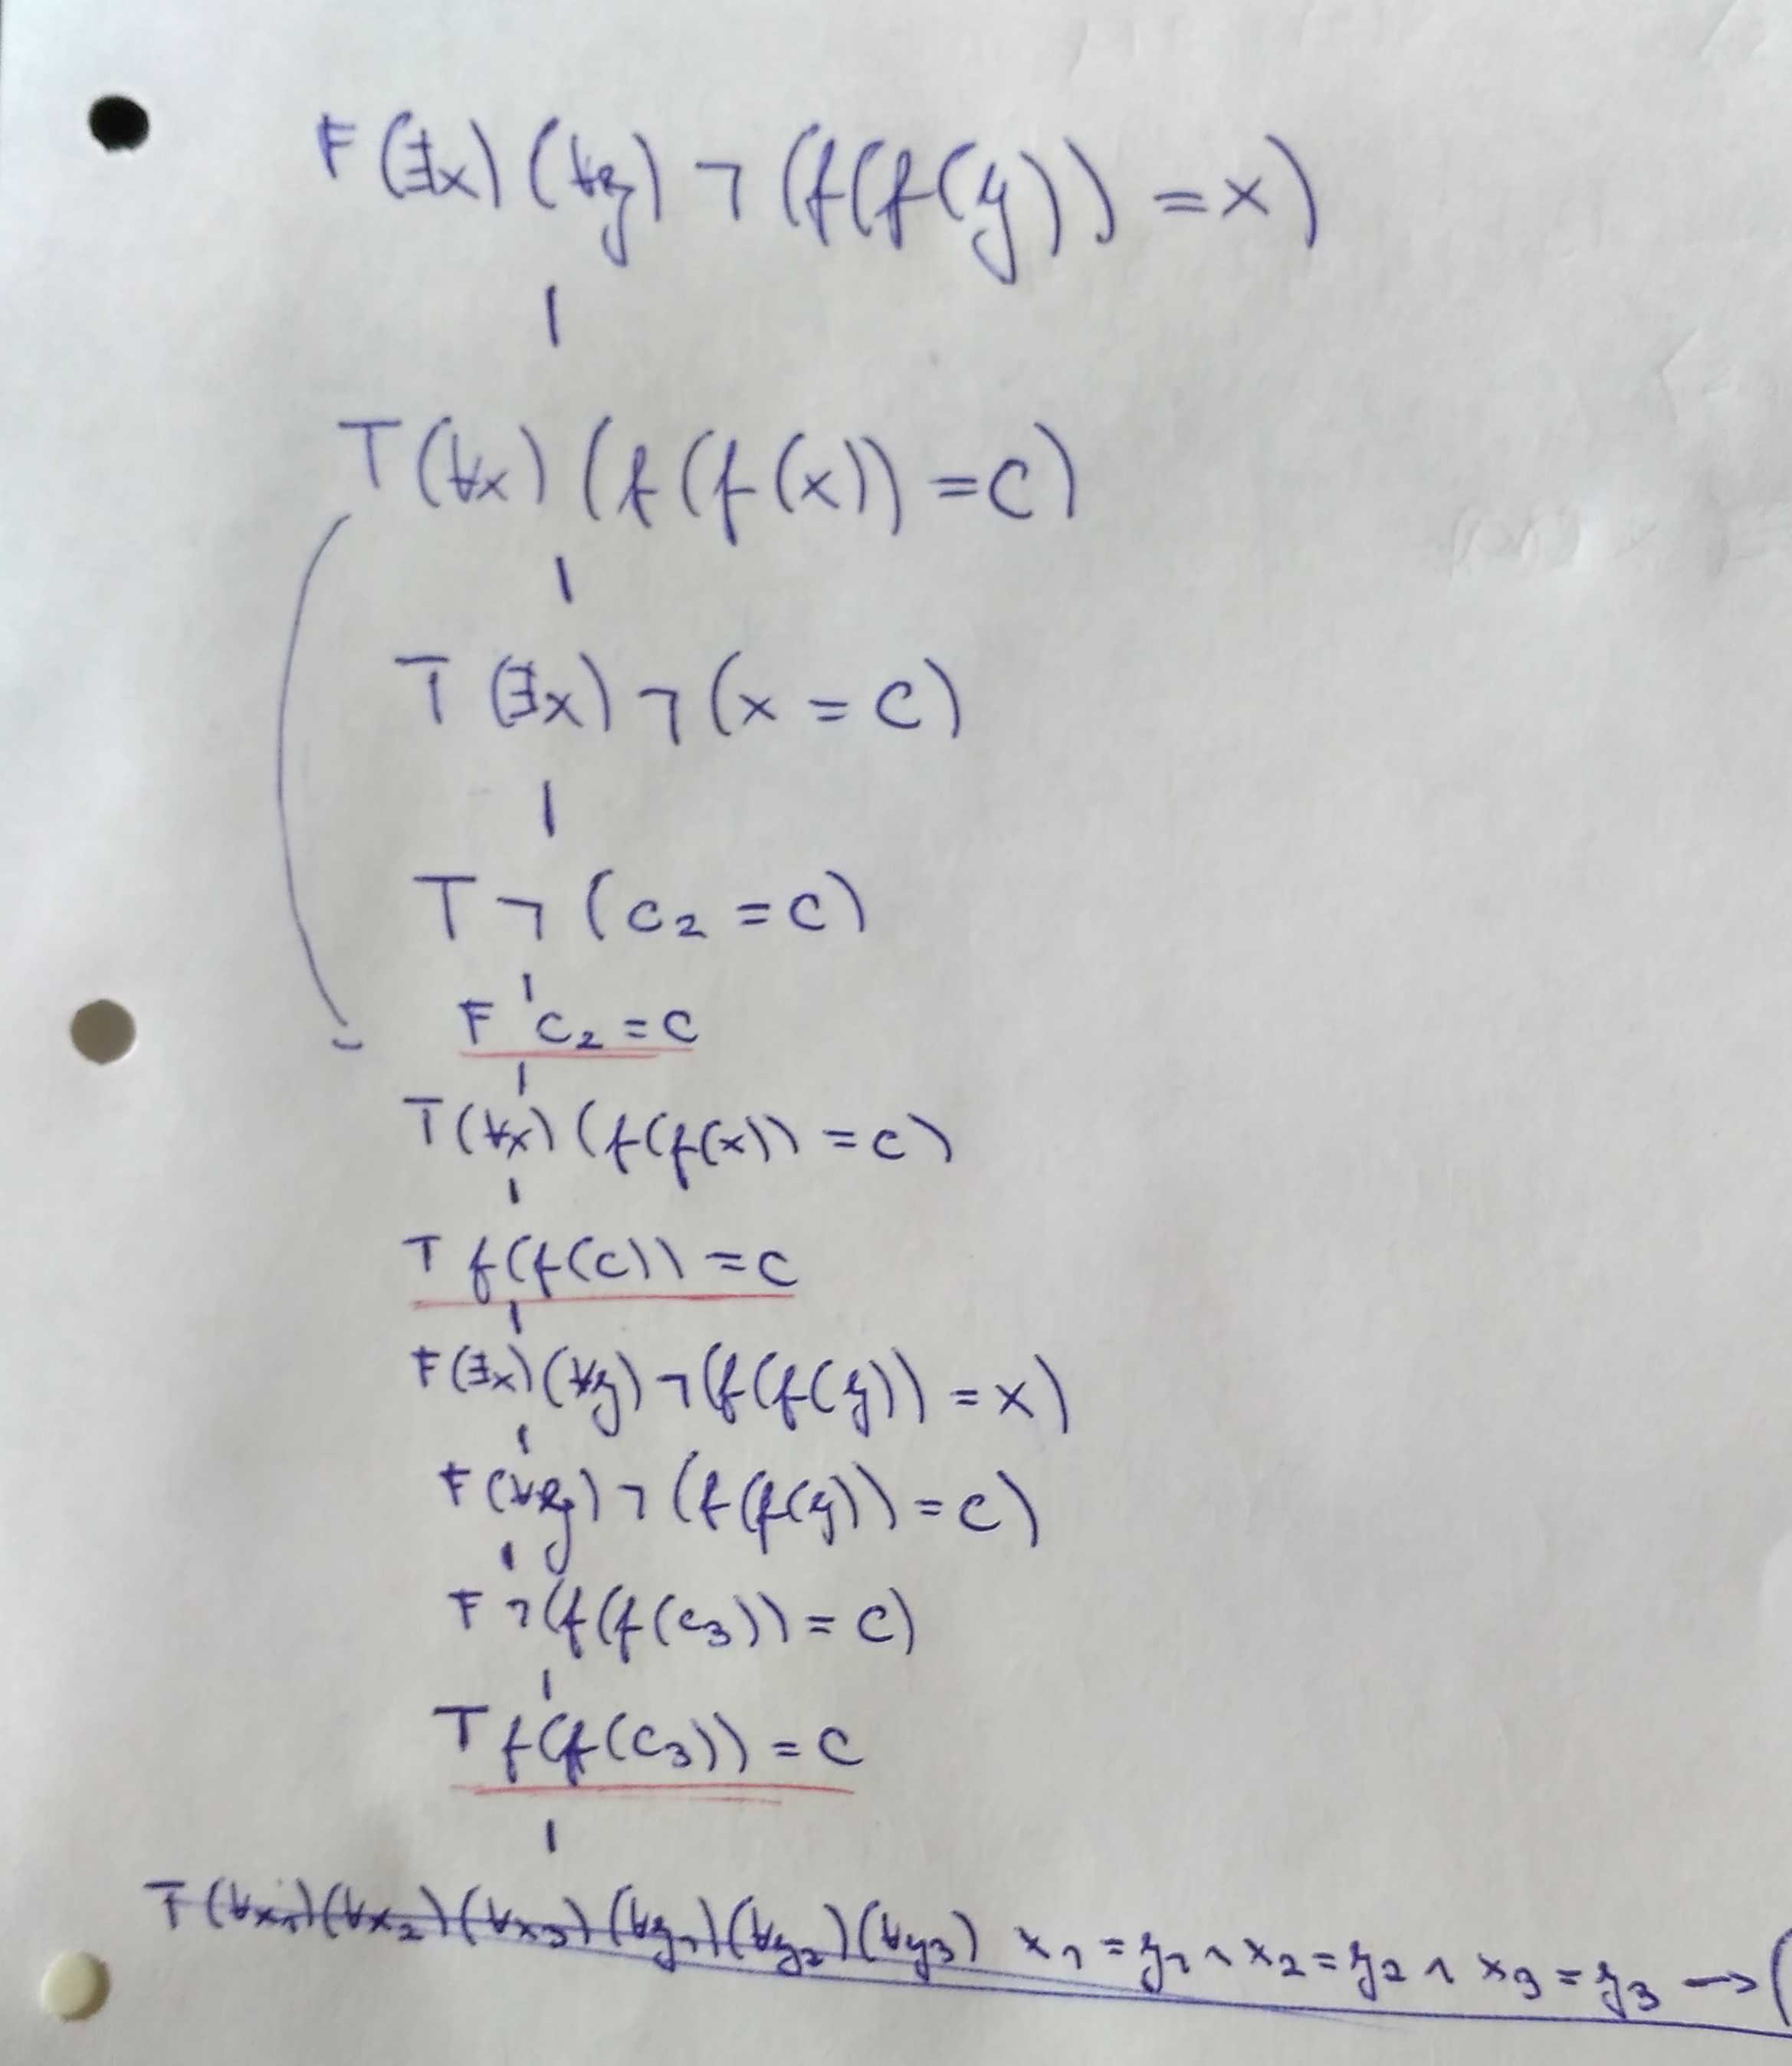 F (∃x) (∀y) ¬ (f(f(y)) = x)
T (∀x) (f(f(x)) = c)
T (∃x) ¬ (x = c)
T ¬ (c₂ = c)
F c₂ = c
T (∀x) (f(f(x)) = c)
T f(f(c)) = c
F (∃x) (∀y) ¬ (f(f(y)) = x)
F (∀y) ¬ (f(f(y)) = c)
F ¬ (f(f(c₃)) = c)
T f(f(c₃)) = c
T (∀x₁) (∀x₂) (∀x₃) (∀y₁) (∀y₂) (∀y₃) x₁ = y₁ ∧ x₂ = y₂ ∧ x₃ = y₃ → (